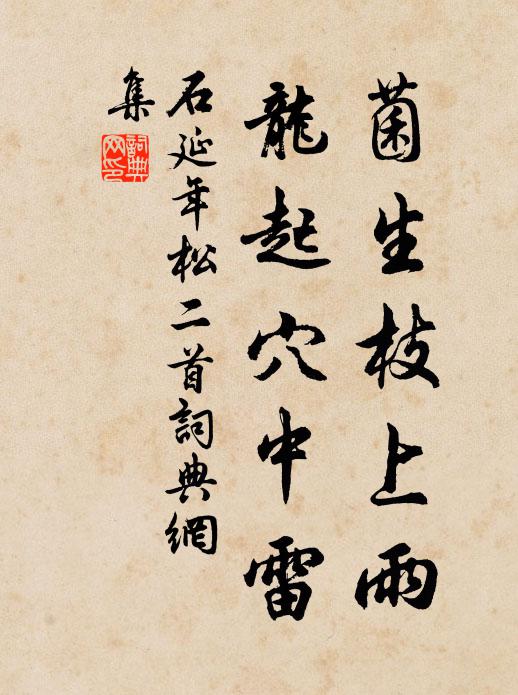 菌生枝上雨
龍起穴中雷
石延年松二首詞典網
集
詞典網印